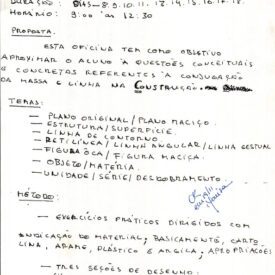 DURAÇÃO: DIAS - 8.9.10.11.12.14.15.16.17.18.
HORÁRIO: 9:00 às 12:30
PROPOSTA:
ESTA OFICINA TEM COMO OBJETIVO
APROXIMAR O ALUNO À QUESTÕES CONCEITUAIS
E CONCRETAS REFERENTES À CONJUGAÇÃO
DA MASSA E LINHA NA CONSTRUÇÃO.
TEMAS:
- PLANO ORIGINAL/PLANO MACIÇO.
- ESTRUTURA/SUPERFÍCIE.
- LINHA DE CONTORNO.
- RETILÍNEA/LINHA ANGULAR/LINHA GESTUAL
- FIGURA ÔCA/FIGURA MACIÇA.
- OBJETO/MATÉRIA.
- UNIDADE/SÉRIE/DESDOBRAMENTO.
MÉTODO:
- EXERCÍCIOS PRÁTICOS DIRIGIDOS COM
INDICAÇÃO DO MATERIAL; BASICAMENTE, CARTO
LINA, ARAME, PLÁSTICO E ARGILA; APROPRIAÇÕES
- TRES SEÇÕES DE DESENHO.